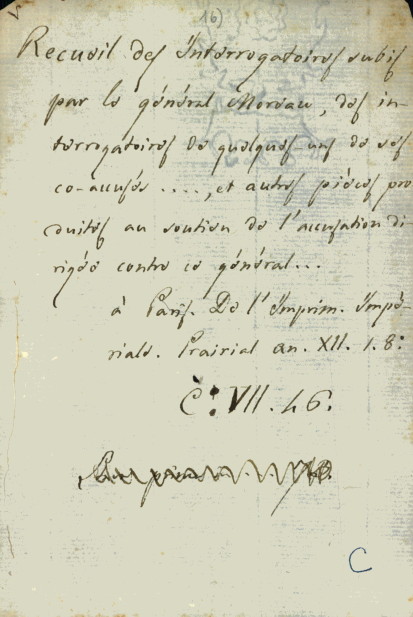 16)
Recueil des Interrogatoires subis
par le général Moreau, des in-
terrogatoires de quelques-uns de ses
co-accusés ...., et autres pièces pro
duites au soutien de l'accusation di-
rigée contre ce général...
à Paris. De l'Imprim. Impé-
riale. Prairial an. XII. 1. 8:
C: VII. 46.
C